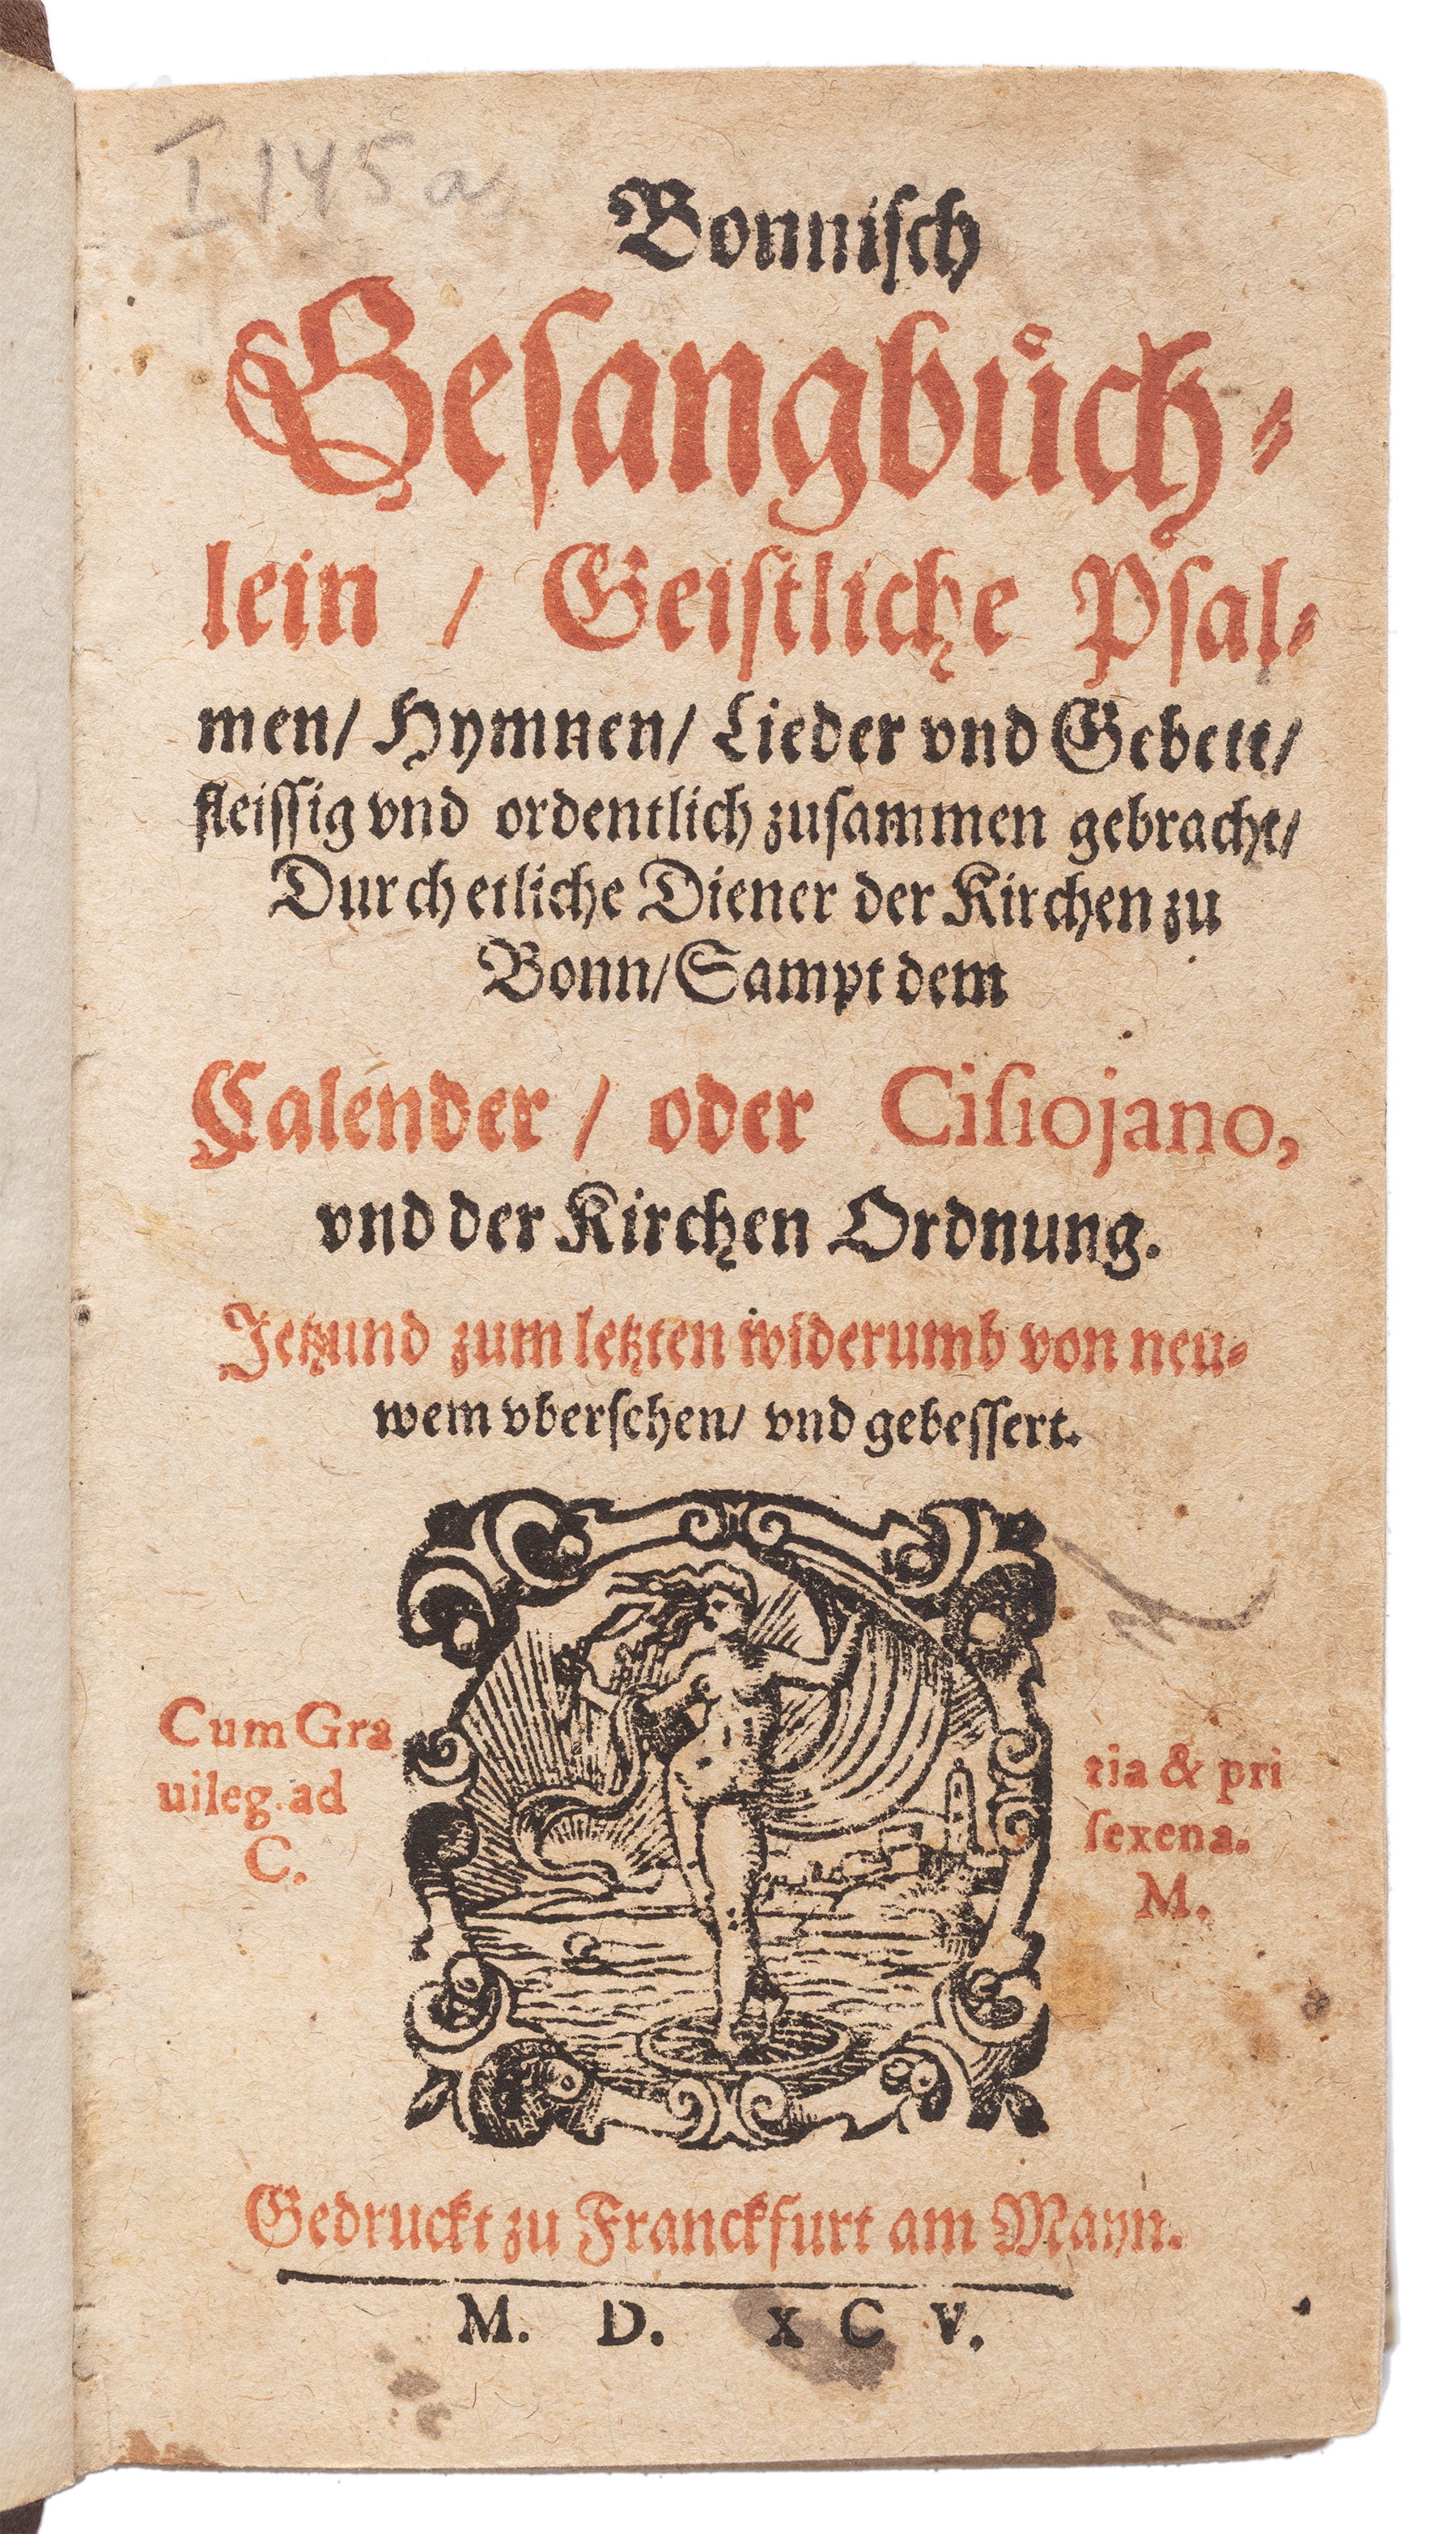 I 145 a
Bonnisch
Gesangbuͦch⸗
lein / Geistliche Psal⸗
men/ Hymnen/ Lieder vnd Gebett/
fleissig vnd ordentlich zusammen gebracht/
Durch etliche Diener der Kirchen zu
Bonn/ Sampt dem
Calender / oder Cisiojano,
vnd der Kirchen Ordnung.
Jetzund zum letzten widerumb von neu⸗
wem vbersehen/ vnd gebessert.
Cum Gra tia & pri
uileg. ad sexena.
C. M.
Gedruckt zu Franckfurt am Mayn.
M. D. XCV.